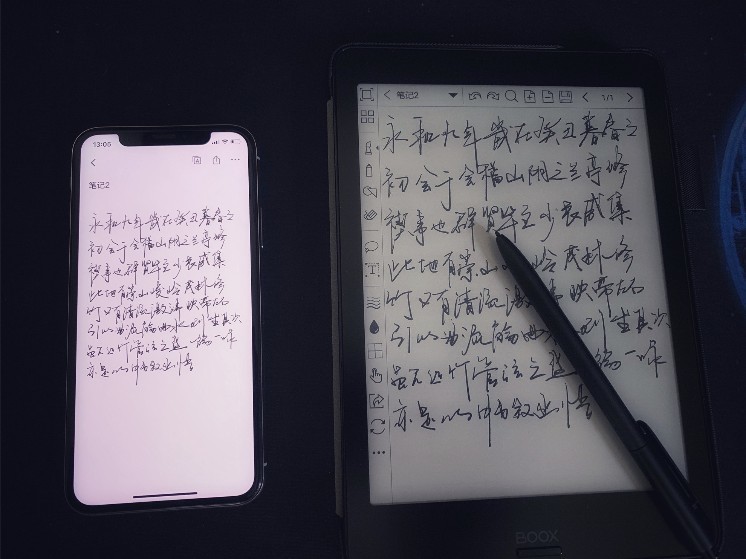 13:05
笔记2
永和九年歲在癸丑暮春之
初会于会稽山阴之兰亭修
禊事也群贤毕至少长咸集
此地有崇山峻岭茂林修
竹又有清流激湍映带左右
引以为流觞曲水列坐其次
虽无丝竹管弦之盛一觞一咏
亦足以畅叙幽情
笔记2
1/1
永和九年歲在癸丑暮春之
初会于会稽山阴之兰亭修
禊事也群贤毕至少长咸集
此地有崇山峻岭茂林修
竹又有清流激湍映带左右
引以为流觞曲水列坐其次
虽无丝竹管弦之盛一觞一咏
亦足以畅叙幽情
BOOX